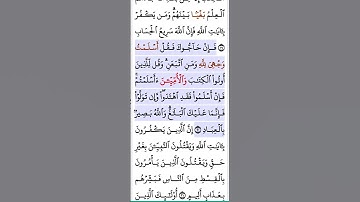 ٱلْعِلْمُ بَغْيًۢا بَيْنَهُمْ ۗ وَمَن يَكْفُرْ
بِـَٔايَـٰتِ ٱللَّهِ فَإِنَّ ٱللَّهَ سَرِيعُ ٱلْحِسَابِ
١٩ فَإِنْ حَآجُّوكَ فَقُلْ أَسْلَمْتُ
وَجْهِىَ لِلَّهِ وَمَنِ ٱتَّبَعَنِ ۗ وَقُل لِّلَّذِينَ
أُوتُوا۟ ٱلْكِتَـٰبَ وَٱلْأُمِّيِّـۧنَ ءَأَسْلَمْتُمْ ۚ
فَإِنْ أَسْلَمُوا۟ فَقَدِ ٱهْتَدَوا۟ ۖ وَّإِن تَوَلَّوْا۟
فَإِنَّمَا عَلَيْكَ ٱلْبَلَـٰغُ ۗ وَٱللَّهُ بَصِيرٌۢ
بِٱلْعِبَادِ ٢٠ إِنَّ ٱلَّذِينَ يَكْفُرُونَ
بِـَٔايَـٰتِ ٱللَّهِ وَيَقْتُلُونَ ٱلنَّبِيِّـۧنَ بِغَيْرِ
حَقٍّ وَيَقْتُلُونَ ٱلَّذِينَ يَأْمُرُونَ
بِٱلْقِسْطِ مِنَ ٱلنَّاسِ فَبَشِّرْهُم
بِعَذَابٍ أَلِيمٍ ٢١ أُو۟لَـٰٓئِكَ ٱلَّذِينَ